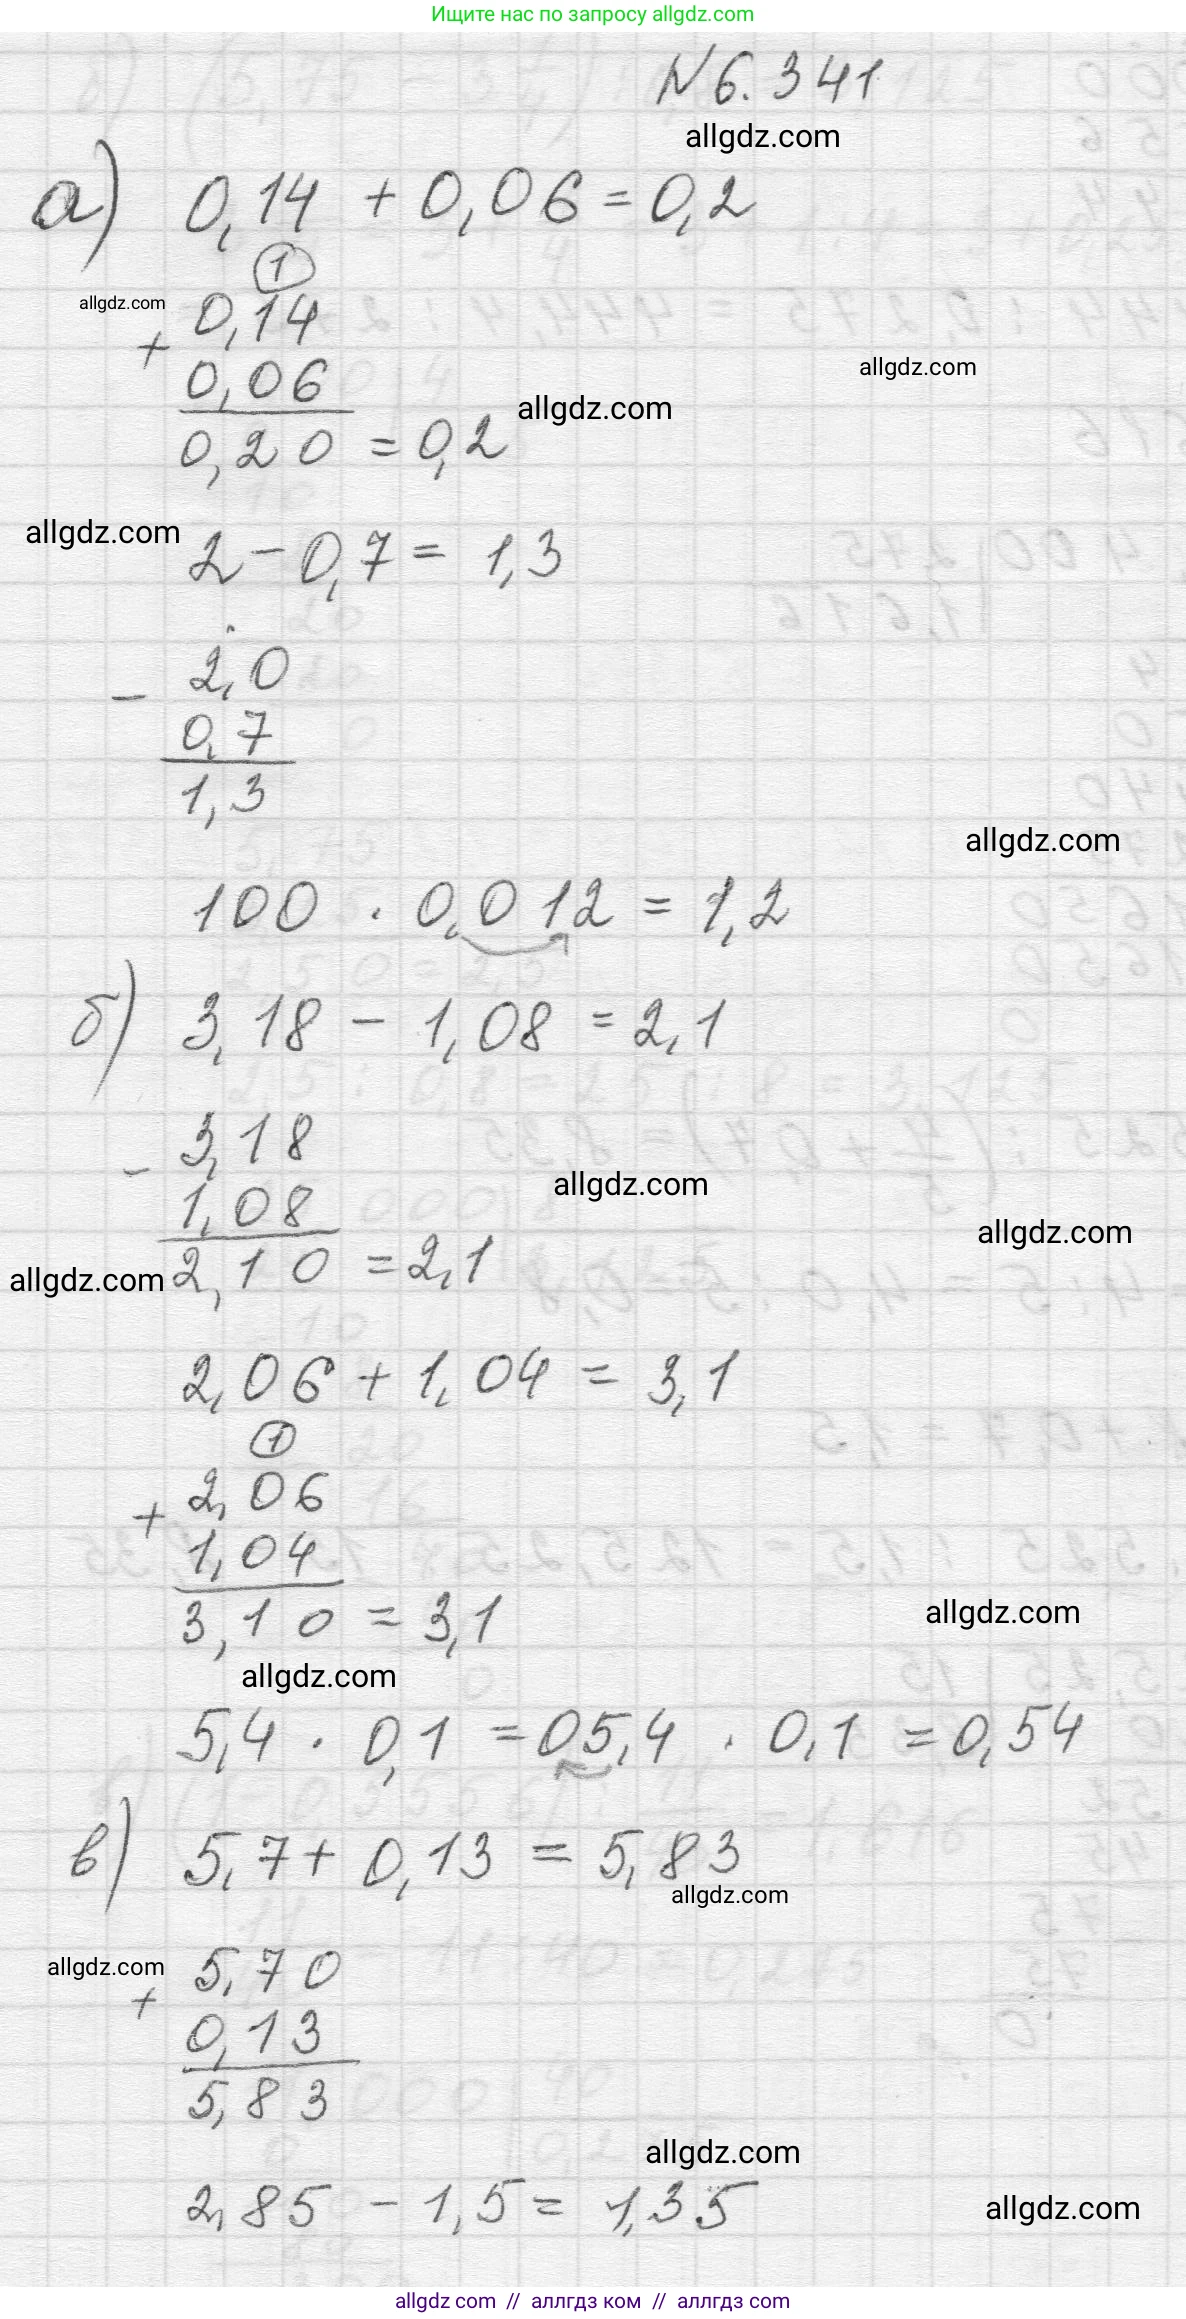 Ищите нас по запросу allgdz.com
N 6.341
allgdz.com
а) 0,14 + 0,06 = 0,2
1
allgdz.com
0,14
+
allgdz.com
0,06
allgdz.com
0,20 = 0,2
allgdz.com
2 - 0,7 = 1,3
2,0
-
0,7
1,3
allgdz.com
100 · 0,012 = 1,2
б) 3,18 - 1,08 = 2,1
3,18
-
allgdz.com
1,08
allgdz.com
allgdz.com
2,10 = 2,1
2,06 + 1,04 = 3,1
1
2,06
+
1,04
3,10 = 3,1
allgdz.com
allgdz.com
5,4 · 0,1 = 05,4 · 0,1 = 0,54
в) 5,7 + 0,13 = 5,83
allgdz.com
allgdz.com
5,70
+
0,13
5,83
allgdz.com
2,85 - 1,5 = 1,35
allgdz.com
allgdz.com // аллгдз ком // аллгдз.com